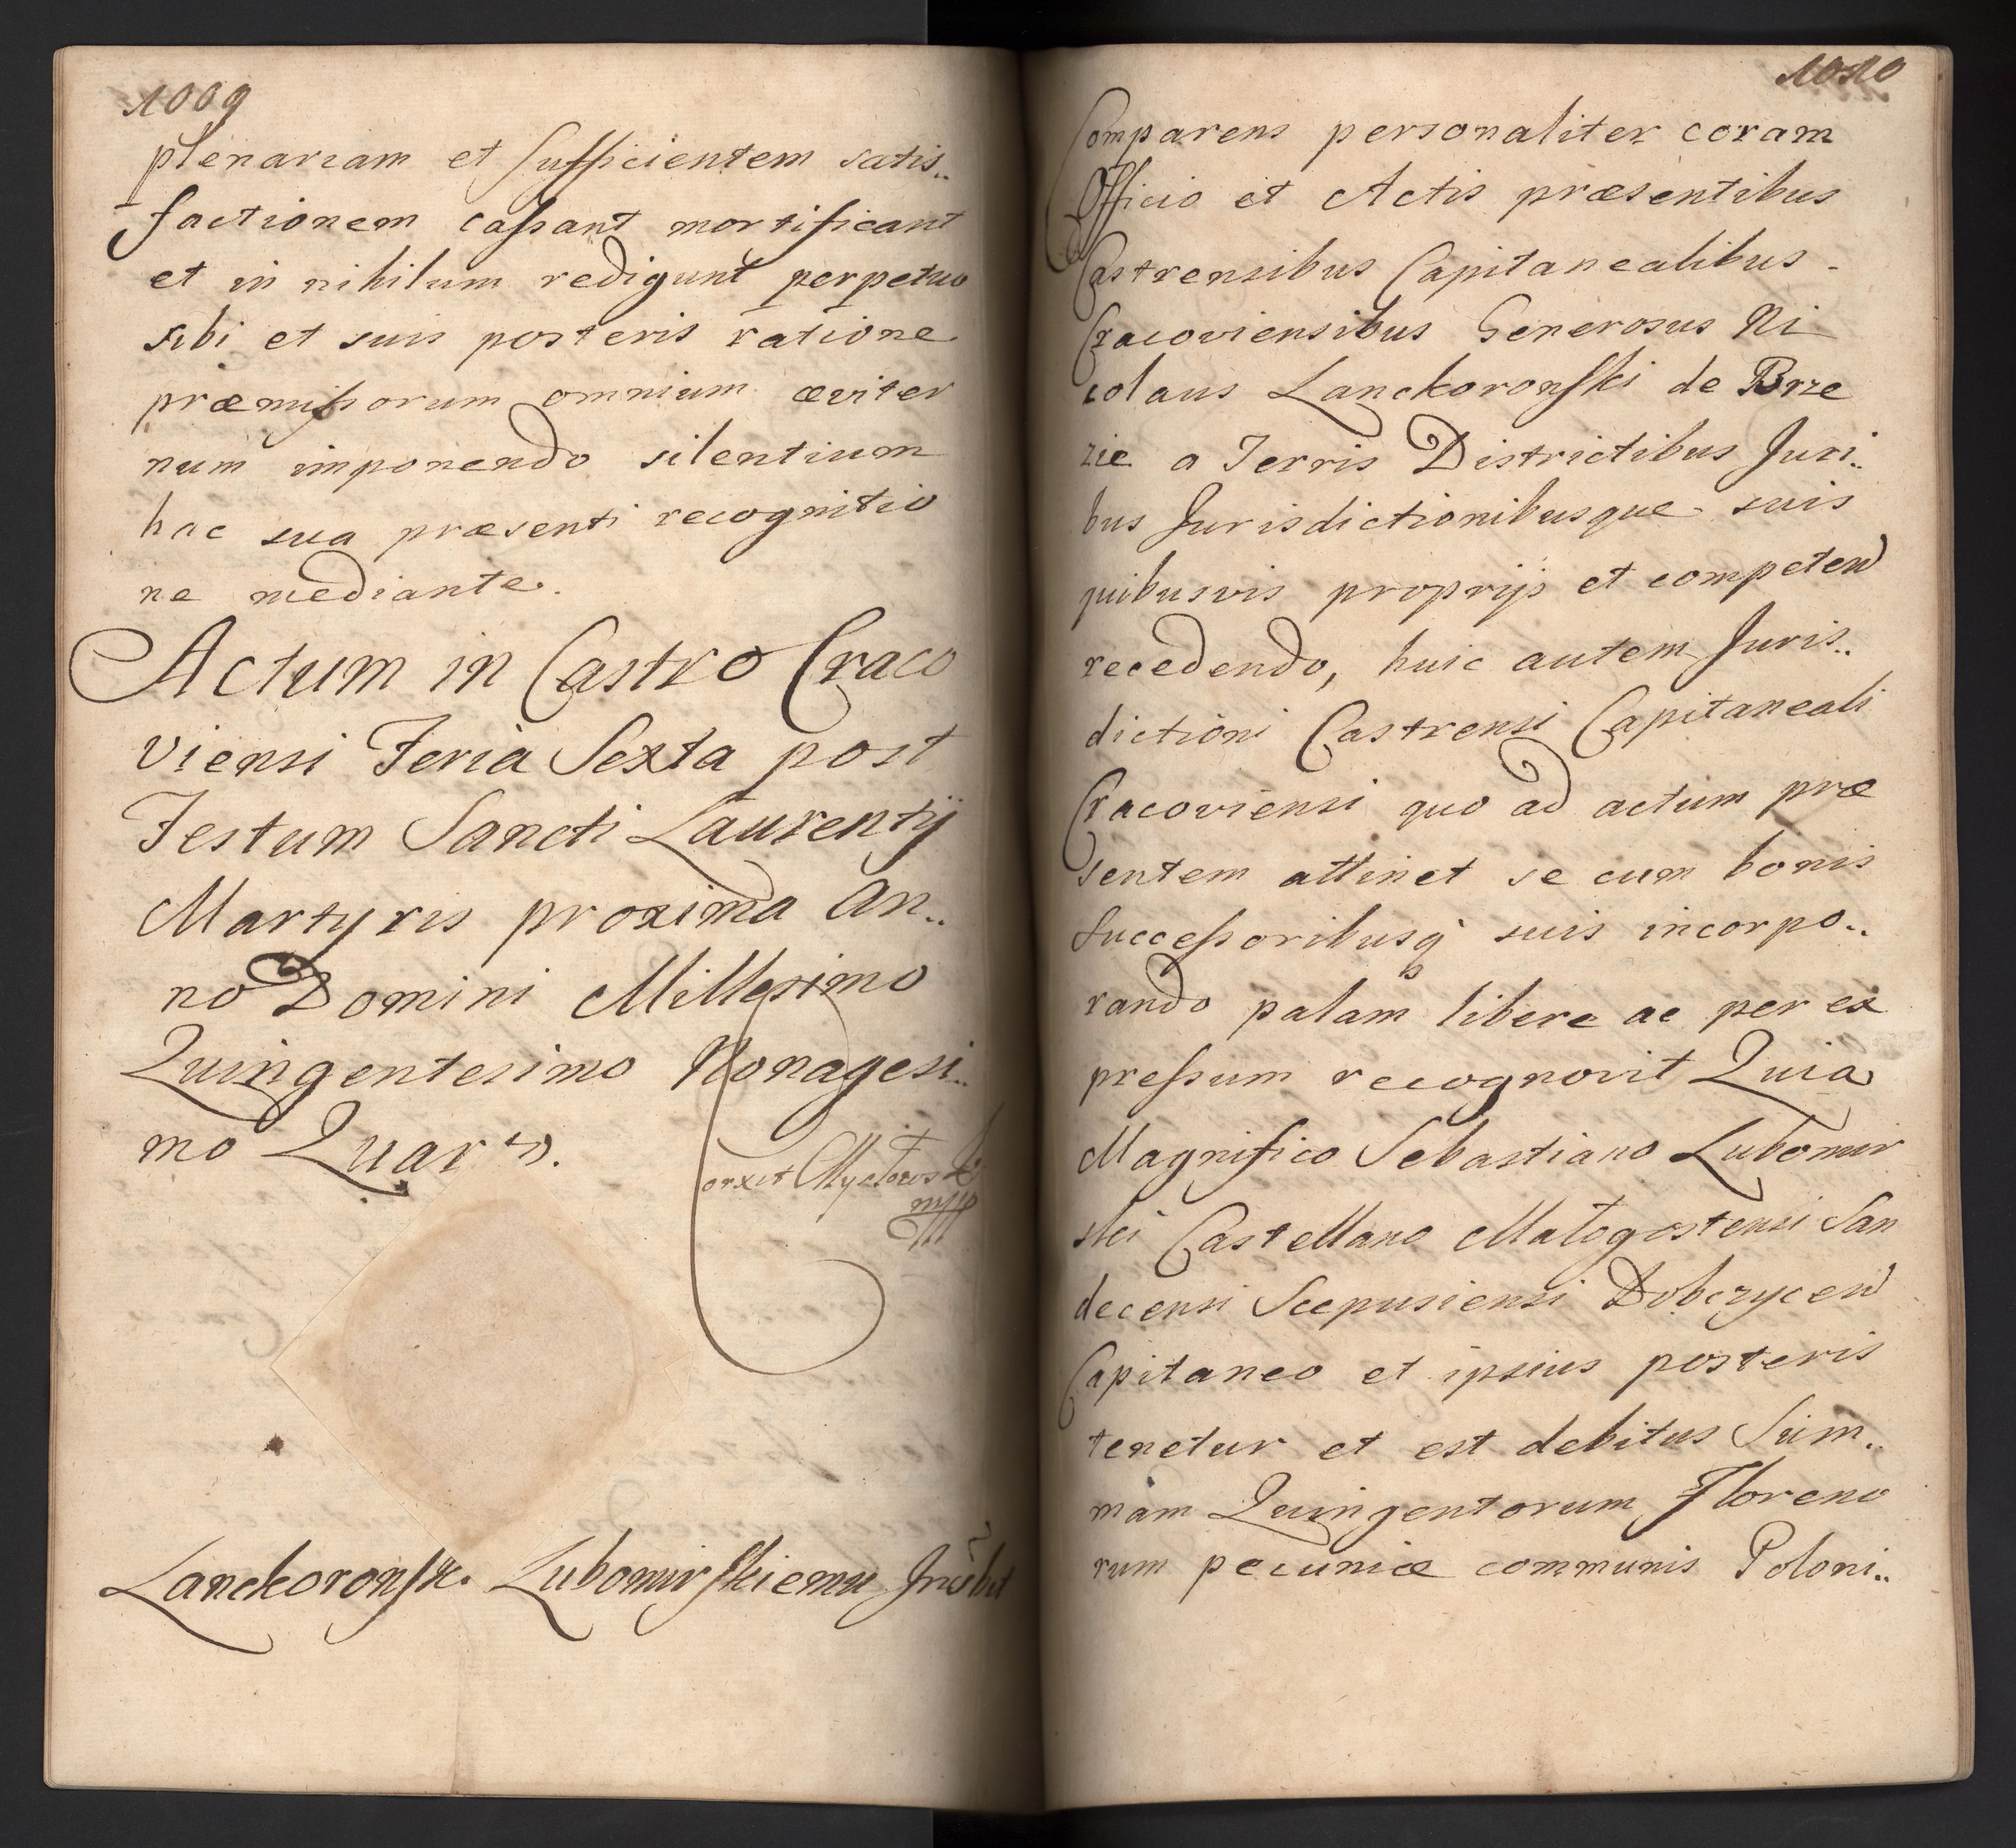 1009
plenariam et sufficientem satis..
factionem cassant mortificant
et in nihilum redigunt perpetuo
sibi et suis posteris ratione
præmissorum omnium æviter
num imponendo silentium
hac sua præsenti recognitio
ne mediante.
Actum in Castro Craco
viensi Feria Sexta post
Festum Sancti Laurentij
Martyris proxima An..
no Domini Millesimo
Quingentesimo Nonagesi..
mo Quarto.
Lanckoronsk. Lubomirskiemu
1010
Comparens personaliter coram
Officio et Actis præsentibus
Castrensibus Capitanealibus -
Cracoviensibus Generosus Ni
colaus Lanckoronski de Brze
zie a Terris Districtibus Juri..
bus Jurisdictionibusque suis
quibusvis proprijs et competen
recedendo, huic autem Juris..
dictioni Castrensi Capitaneali
Cracoviensi quo ad actum præ
sentem attinet se cum bonis
Successoribusq suis incorpo..
rando palam libere ac per ex
pressum recognovit Quia
Magnifico Sebastiano Lubomir
ski Castellano Malogostensi San
decensi Scepusiensi Dobczycen
Capitaneo et ipsius posteris
tenetur et est debitus Sum..
mam Quingentorum Floreno
rum pecuniæ communis Poloni..